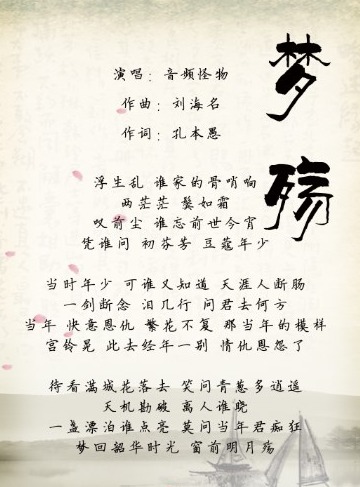 梦殇
演唱：音频怪物
作曲：刘海名
作词：孔本愚
浮生乱 谁家的骨哨响
两茫茫 鬓如霜
叹前尘 谁忘前世今宵
凭谁问 初芬芳 豆蔻年少
当时年少 可谁又知道 天涯人断肠
一剑断念 泪几行 问君去何方
当年 快意恩仇 繁花不复 那当年的模样
宫铃晃 此去经年一别 情仇恩怨了
待看满城花落去 笑问青葱多逍遥
天机勘破 离人谁晓
一盏漂泊谁点亮 莫问当年君痴狂
梦回韶华时光 窗前明月殇